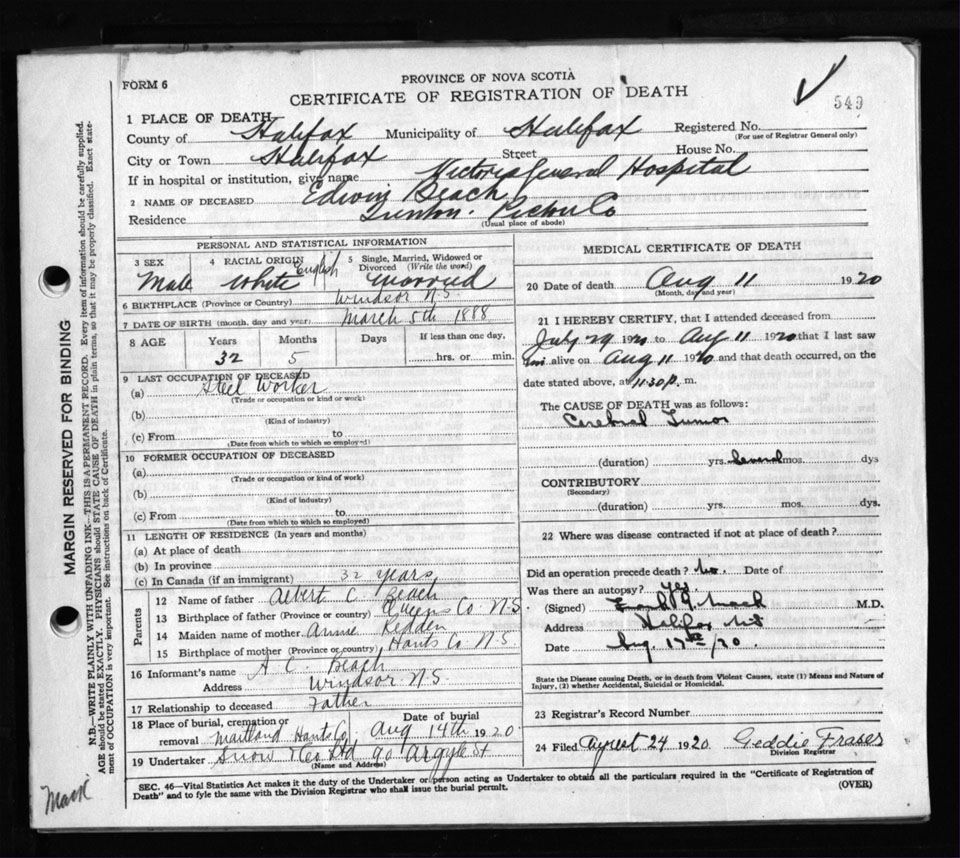 FORM 6
PROVINCE OF NOVA SCOTIA
CERTIFICATE OF REGISTRATION OF DEATH
549
1 PLACE OF DEATH
County of Halifax Municipality of Halifax Registered No.
(For use of Registrar General only)
City or Town Halifax Street House No.
If in hospital or institution, give name Victoria General Hospital
2 NAME OF DECEASED Edwin Beach
Residence Pictou Co
(Usual place of abode)
PERSONAL AND STATISTICAL INFORMATION
3 SEX 4 RACIAL ORIGIN 5 Single, Married, Widowed or Divorced (Write the word)
Male White English Married
6 BIRTHPLACE (Province or Country) Windsor N.S.
7 DATE OF BIRTH (month, day and year) March 5th 1888
8 AGE Years Months Days If less than one day,
32 5 hrs. or min.
9 LAST OCCUPATION OF DECEASED
(a) Steel Worker
(Trade or occupation or kind or work)
(b)
(Kind of industry)
(c) From to
(Date from which to which so employed)
10 FORMER OCCUPATION OF DECEASED
(a)
(Trade or occupation or kind of work)
(b)
(Kind of industry)
(c) From to
(Date from which to which so employed)
11 LENGTH OF RESIDENCE (In years and months)
(a) At place of death
(b) In province
(c) In Canada (if an immigrant) 32 years
Parents
12 Name of father Albert C Beach
13 Birthplace of father (Province or country) Queens Co. N.S.
14 Maiden name of mother Annie Redden
15 Birthplace of mother (Province or country) Hants Co N.S
16 Informant's name A C. Beach
Address Windsor N.S.
17 Relationship to deceased Father
18 Place of burial, cremation or removal Maitland Hants Co. Date of burial Aug 14th 1920
19 Undertaker Snow & Co Ltd 90 Argyle St
(Name and Address)
MEDICAL CERTIFICATE OF DEATH
20 Date of death Aug 11 1920
(Month, day and year)
21 I HEREBY CERTIFY, that I attended deceased from
July 29 1920 to Aug 11 1920 that I last saw
him alive on Aug 11 1920 and that death occurred, on the
date stated above, at 11.30 P. m.
The CAUSE OF DEATH was as follows:
Cerebral Tumor
(duration) yrs. Several mos. dys
CONTRIBUTORY
(Secondary)
(duration) yrs. mos. dys.
22 Where was disease contracted if not at place of death?
Did an operation precede death? No. Date of
Was there an autopsy? Yes
(Signed) M.D.
Address Halifax
Date Aug. 17th/20.
State the Disease causing Death, or in death from Violent Causes, state (1) Means and Nature of
Injury, (2) whether Accidental, Suicidal or Homicidal.
23 Registrar's Record Number
24 Filed August 24 1920 Geddie Fraser
Division Registrar
SEC. 46—Vital Statistics Act makes it the duty of the Undertaker or person acting as Undertaker to obtain all the particulars required in the "Certificate of Registration of
Death" and to fyle the same with the Division Registrar who shall issue the burial permit. (OVER)
MARGIN RESERVED FOR BINDING
N.B.—WRITE PLAINLY WITH UNFADING INK—THIS IS A PERMANENT RECORD. Every item of information should be carefully supplied.
AGE should be stated EXACTLY. PHYSICIANS should STATE CAUSE OF DEATH in plain terms, so that it may be properly classified. Exact state-
ment of OCCUPATION is very important. See instructions on back of Certificate.